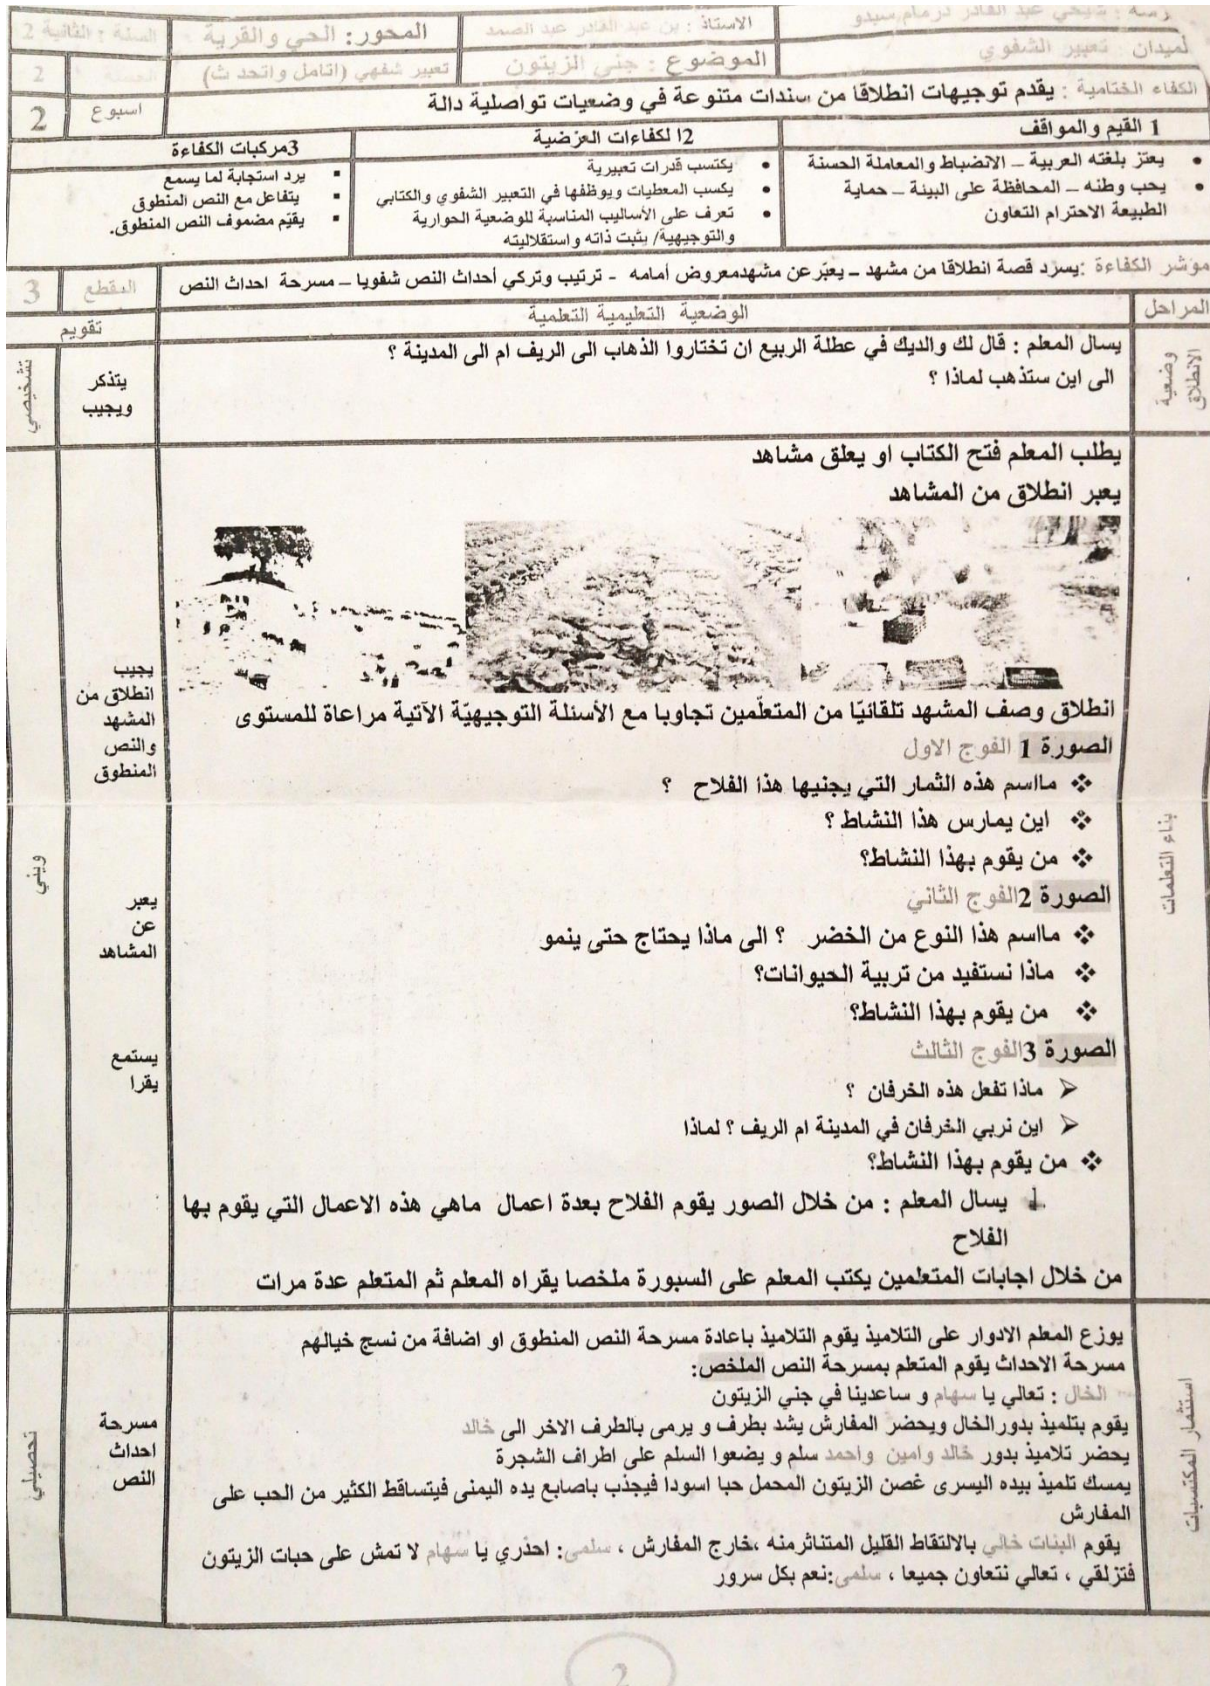 الاستاذ : بن عبد القادر عبد الصمد
المحور: الحي والقرية
السنة : الثانية 2
لميدان : تعبير الشفوي
الموضوع : جني الزيتون
تعبير شفهي (اتامل واتحد ث)
الحصة
2
الكفاء الختامية : يقدم توجيهات انطلاقا من سندات متنوعة في وضعيات تواصلية دالة
اسبوع
2
1 القيم والمواقف
2ا لكفاءات العرضية
3مركبات الكفاءة
• يعتز بلغته العربية – الانضباط والمعاملة الحسنة
• يحب وطنه – المحافظة على البيئة – حماية
الطبيعة الاحترام التعاون
• يكتسب قدرات تعبيرية
• يكسب المعطيات ويوظفها في التعبير الشفوي والكتابي
• تعرف على الأساليب المناسبة للوضعية الحوارية
والتوجيهية/ يثبت ذاته واستقلاليته
▪ يرد استجابة لما يسمع
▪ يتفاعل مع النص المنطوق
▪ يقيّم مضموف النص المنطوق.
مؤشر الكفاءة :يسرد قصة انطلاقا من مشهد – يعبّر عن مشهدمعروض أمامه - ترتيب وتركي أحداث النص شفويا – مسرحة احداث النص
المقطع
3
المراحل
الوضعية التعليمية التعلمية
تقويم
وضعية
الانطلاق
يسال المعلم : قال لك والديك في عطلة الربيع ان تختاروا الذهاب الى الريف ام الى المدينة ؟
الى اين ستذهب لماذا ؟
يتذكر
ويجيب
تشخيصي
بناء التعلمات
يطلب المعلم فتح الكتاب او يعلق مشاهد
يعبر انطلاق من المشاهد
انطلاق وصف المشهد تلقائيّا من المتعلّمين تجاوبا مع الأسئلة التوجيهيّة الآتية مراعاة للمستوى
الصورة 1 الفوج الاول
❖ مااسم هذه الثمار التي يجنيها هذا الفلاح ؟
❖ اين يمارس هذا النشاط ؟
❖ من يقوم بهذا النشاط؟
الصورة 2الفوج الثاني
❖ مااسم هذا النوع من الخضر ؟ الى ماذا يحتاج حتى ينمو
❖ ماذا نستفيد من تربية الحيوانات؟
❖ من يقوم بهذا النشاط؟
الصورة 3الفوج الثالث
➢ ماذا تفعل هذه الخرفان ؟
➢ اين نربي الخرفان في المدينة ام الريف ؟ لماذا
❖ من يقوم بهذا النشاط؟
يسال المعلم : من خلال الصور يقوم الفلاح بعدة اعمال ماهي هذه الاعمال التي يقوم بها
الفلاح
من خلال اجابات المتعلمين يكتب المعلم على السبورة ملخصا يقراه المعلم ثم المتعلم عدة مرات
يجيب
انطلاق من
المشهد
والنص
المنطوق
يعبر
عن
المشاهد
يستمع
يقرا
استثمار المكتسبات
يوزع المعلم الادوار على التلاميذ يقوم التلاميذ باعادة مسرحة النص المنطوق او اضافة من نسج خيالهم
مسرحة الاحداث يقوم المتعلم بمسرحة النص الملخص:
الخال : تعالي يا سهام و ساعدينا في جني الزيتون
يقوم بتلميذ بدورالخال ويحضر المفارش يشد بطرف و يرمى بالطرف الاخر الى خالد
يحضر تلاميذ بدور خالد وامين واحمد سلم و يضعوا السلم على اطراف الشجرة
يمسك تلميذ بيده اليسرى غصن الزيتون المحمل حبا اسودا فيجذب باصابع يده اليمنى فيتساقط الكثير من الحب على
المفارش
يقوم البنات خالي بالالتقاط القليل المتناثرمنه ،خارج المفارش ، سلمى: احذري يا سهام لا تمش على حبات الزيتون
فتزلقي ، تعالي نتعاون جميعا ، سلمى:نعم بكل سرور
مسرحة
احداث
النص
تحصيلي
2